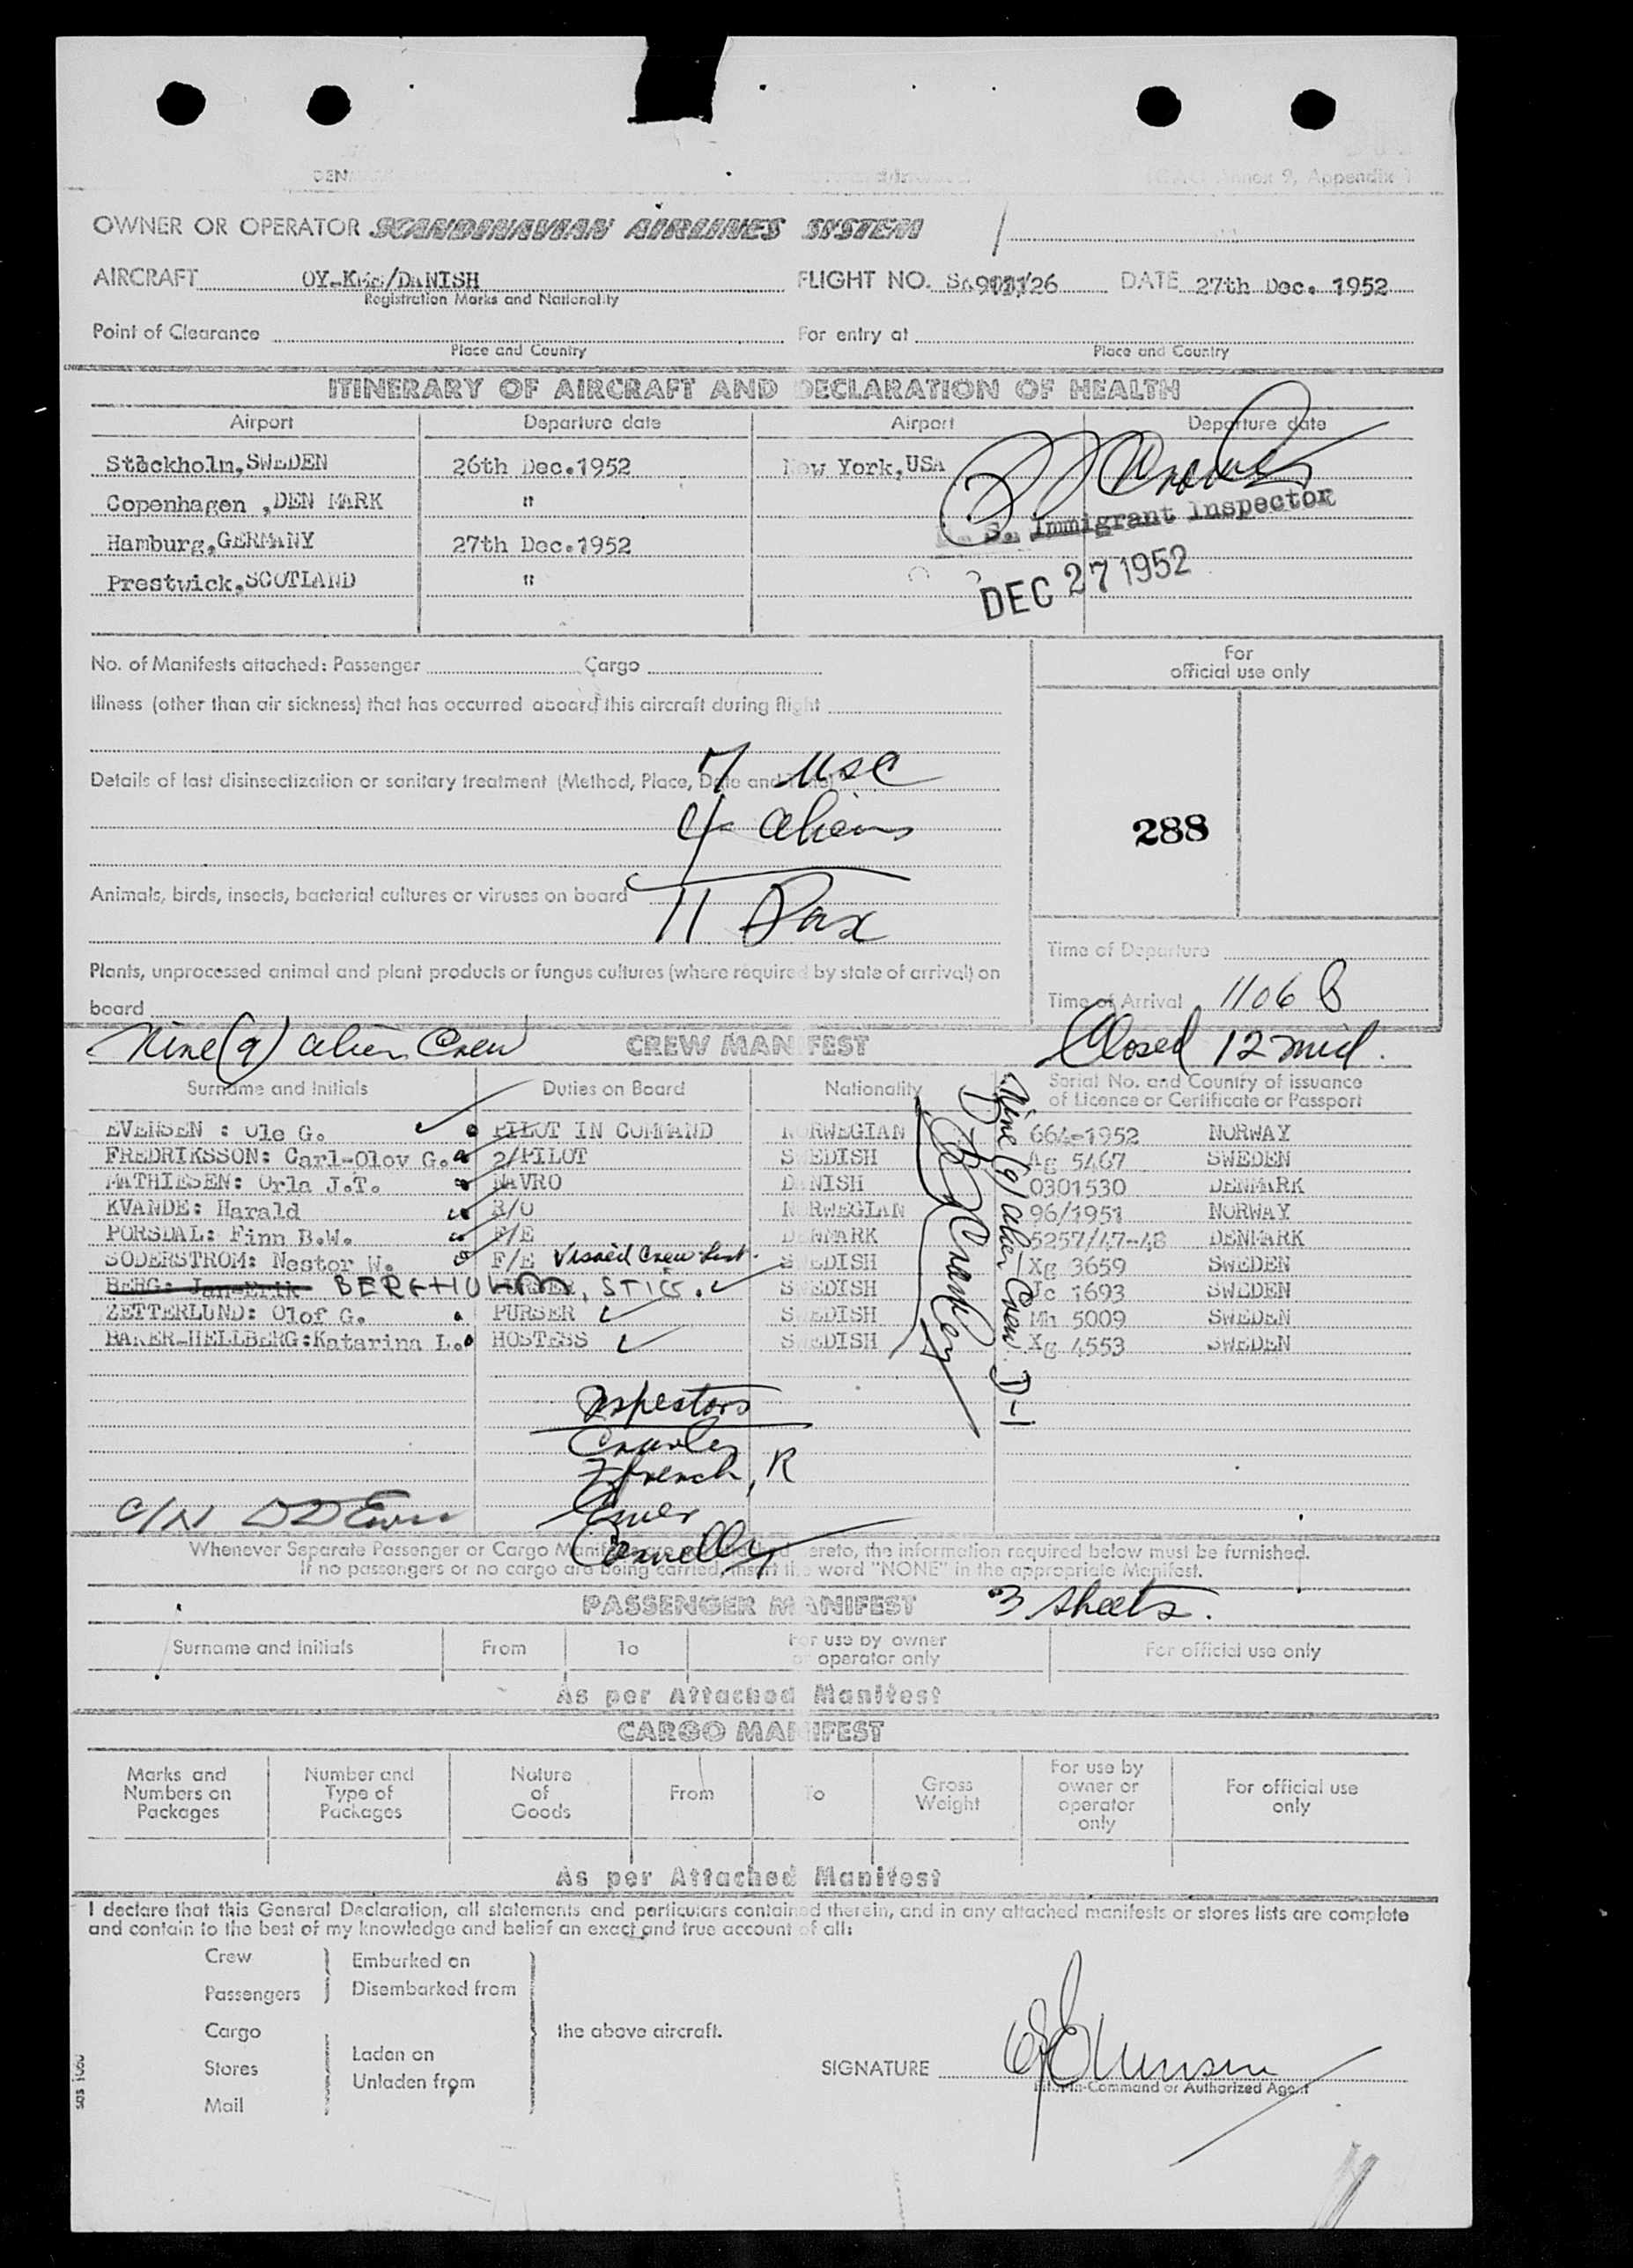 OWNER OR OPERATOR SCANDINAVIAN AIRLINES SYSTEM
AIRCRAFT /DANISH FLIGHT NO. /26 DATE 27th Dec. 1952
Registration Marks and Nationality
Point of Clearance For entry at
Place and Country Place and Country
ITINERARY OF AIRCRAFT AND DECLARATION OF HEALTH
Airport Departure date Airport Departure date
Stockholm, SWEDEN 26th Dec.1952 New York, USA
Copenhagen ,DEN MARK "
S. Immigrant Inspector
Hamburg, GERMANY 27th Dec.1952
Prestwick, SCOTLAND "
DEC 27 1952
No. of Manifests attached: Passenger Cargo
For
official use only
Illness (other than air sickness) that has occurred aboard this aircraft during flight
7 USC
Details of last disinsectization or sanitary treatment (Method, Place, Date and Time)
4 aliens
288
Animals, birds, insects, bacterial cultures or viruses on board
11 Pax
Time of Departure
Plants, unprocessed animal and plant products or fungus cultures (where required by state of arrival) on
board
Time of Arrival 1106
Nine (9) alien Crew CREW MANIFEST Closed 12 mid.
Surname and Initials Duties on Board Nationality Serial No. and Country of issuance
of Licence or Certificate or Passport
EVENSEN : Ole G. PILOT IN COMMAND NORWEGIAN 664-1952 NORWAY
FREDRIKSSON: Carl-Olov G. 2/PILOT SWEDISH Ag 5467 SWEDEN
MATHIESEN: Orla J.T. NAVRO DANISH 0301530 DENMARK
KVANDE: Harald R/O NORWEGIAN 96/1951 NORWAY
PORSDAL: Finn B.W. F/E DENMARK 5257/47-48 DENMARK
SODERSTROM: Nestor W. F/E Visaed Crew List. SWEDISH Xg 3659 SWEDEN
BERG: Jan-Erik BERGHOLM, STIG. SWEDISH Jc 1693 SWEDEN
ZETTERLUND: Olof G. PURSER SWEDISH Mh 5009 SWEDEN
BAKER-HELLBERG:Katarina L. HOSTESS SWEDISH Xg 4553 SWEDEN
Nine (9) alien Crew D-1
Crawley
Inspectors
Crawley
Ffrench, R
Connelly
C/N
Whenever Separate Passenger or Cargo Manifests are attached hereto, the information required below must be furnished.
If no passengers or no cargo are being carried, insert the word "NONE" in the appropriate Manifest.
PASSENGER MANIFEST 3 sheets.
Surname and Initials From To For use by owner
or operator only For official use only
As per Attached Manifest
CARGO MANIFEST
Marks and
Numbers on
Packages
Number and
Type of
Packages
Nature
of
Goods
From To
Gross
Weight
For use by
owner or
operator
only
For official use
only
As per Attached Manifest
I declare that this General Declaration, all statements and particulars contained therein, and in any attached manifests or stores lists are complete
and contain to the best of my knowledge and belief an exact and true account of all:
Crew Embarked on
Passengers Disembarked from
Cargo the above aircraft.
Laden on
Stores SIGNATURE
Unladen from
Pilot-in-Command or Authorized Agent
Mail